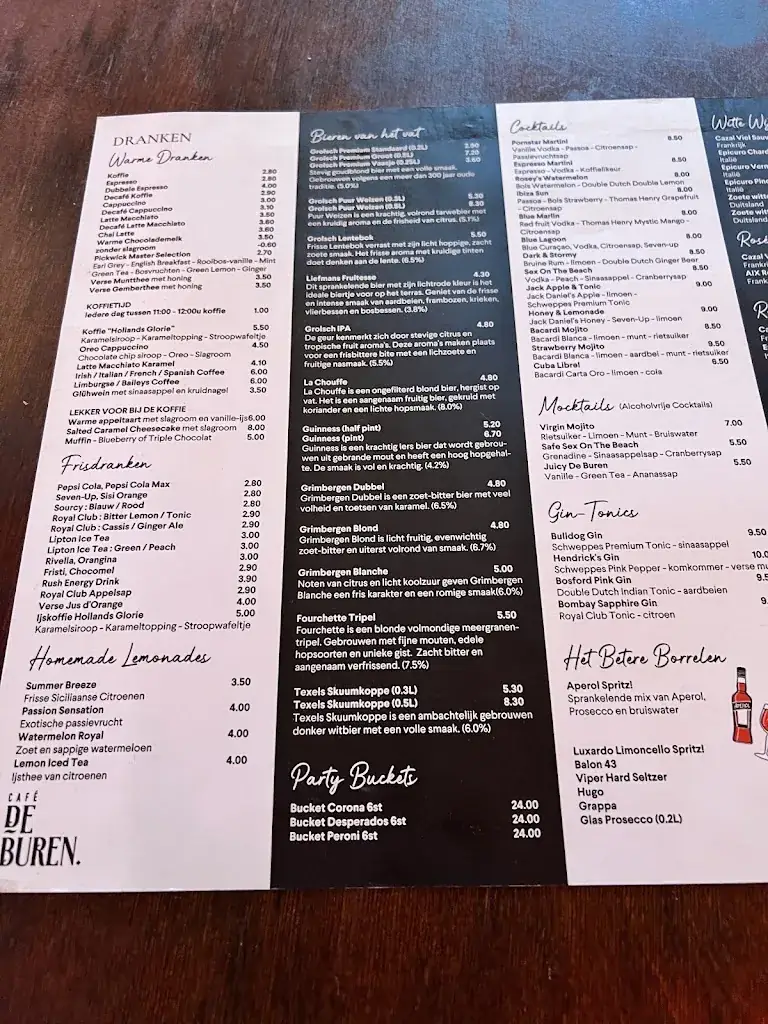 DRANKEN
Warme Dranken
Koffie 2.80
Espresso 2.80
Dubbele Espresso 4.00
Decafé Koffie 2.90
Cappuccino 3.00
Decafé Cappuccino 3.10
Latte Macchiato 3.50
Decafé Latte Macchiato 3.60
Chai Latte 3.60
Warme Chocolademelk 3.50
zonder slagroom -0.60
Pickwick Master Selection 2.70
Earl Grey - English Breakfast - Rooibos-vanille - Mint
Green Tea - Bosvruchten - Green Lemon - Ginger
Verse Muntthee met honing 3.50
Verse Gemberthee met honing 3.50
KOFFIETIJD
Iedere dag tussen 11:00 - 12:00u koffie 1.00
Koffie "Hollands Glorie" 5.50
Karamelsiroop - Karameltopping - Stroopwafeltje
Oreo Cappuccino 4.50
Chocolate chip siroop - Oreo - Slagroom
Latte Macchiato Karamel 4.10
Irish / Italian / French / Spanish Coffee 6.00
Limburgse / Baileys Coffee 6.00
Glühwein met sinaasappel en kruidnagel 3.50
LEKKER VOOR BIJ DE KOFFIE
Warme appeltaart met slagroom en vanille-ijs 6.00
Salted Caramel Cheesecake met slagroom 8.00
Muffin - Blueberry of Triple Chocolat 5.00
Frisdranken
Pepsi Cola, Pepsi Cola Max 2.80
Seven-Up, Sisi Orange 2.80
Sourcy : Blauw / Rood 2.80
Royal Club : Bitter Lemon / Tonic 2.90
Royal Club : Cassis / Ginger Ale 2.90
Lipton Ice Tea 3.00
Lipton Ice Tea : Green / Peach 3.00
Rivella, Orangina 3.00
Fristi, Chocomel 2.90
Rush Energy Drink 3.90
Royal Club Appelsap 2.90
Verse Jus d'Orange 4.00
Ijskoffie Hollands Glorie 5.00
Karamelsiroop - Karameltopping - Stroopwafeltje
Homemade Lemonades
Summer Breeze 3.50
Frisse Siciliaanse Citroenen
Passion Sensation 4.00
Exotische passievrucht
Watermelon Royal 4.00
Zoet en sappige watermeloen
Lemon Iced Tea 4.00
Ijsthee van citroenen
CAFÉ
DE
BUREN.
Bieren van het vat
Grolsch Premium Standaard (0.2L) 2.90
Grolsch Premium Groot (0.5L) 7.20
Grolsch Premium Vaasje (0.25L) 3.60
Stevig goudblond bier met een volle smaak.
Gebrouwen volgens een meer dan 300 jaar oude
traditie. (5.0%)
Grolsch Puur Weizen (0.3L) 5.30
Grolsch Puur Weizen (0.5L) 8.30
Puur Weizen is een krachtig, volrond tarwebier met
een kruidig aroma en de frisheid van citrus. (5.1%)
Grolsch Lentebok 5.50
Frisse Lentebok verrast met zijn licht hoppige, zacht
zoete smaak. Het frisse aroma met kruidige tinten
doet denken aan de lente. (6.5%)
Liefmans Fruitesse 4.30
Dit sprankelende bier met zijn lichtrode kleur is het
ideale biertje voor op het terras. Geniet van de frisse
en intense smaak van aardbeien, frambozen, krieken,
vlierbessen en bosbessen. (3.8%)
Grolsch IPA 4.80
De geur kenmerkt zich door stevige citrus en
tropische fruit aroma's. Deze aroma's maken plaats
voor een frisbittere bite met een lichzoete en
fruitige nasmaak. (5.5%)
La Chouffe 4.80
La Chouffe is een ongefilterd blond bier, hergist op
vat. Het is een aangenaam fruitig bier, gekruid met
koriander en een lichte hopsmaak. (8.0%)
Guinness (half pint) 5.20
Guinness (pint) 6.70
Guinness is een krachtig Iers bier dat wordt gebrou-
wen uit gebrande mout en heeft een hoog hopgehal-
te. De smaak is vol en krachtig. (4.2%)
Grimbergen Dubbel 4.80
Grimbergen Dubbel is een zoet-bitter bier met veel
volheid en toetsen van karamel. (6.5%)
Grimbergen Blond 4.80
Grimbergen Blond is licht fruitig, evenwichtig
zoet-bitter en uiterst volrond van smaak. (6.7%)
Grimbergen Blanche 5.00
Noten van citrus en licht koolzuur geven Grimbergen
Blanche een fris karakter en een romige smaak(6.0%)
Fourchette Tripel 5.50
Fourchette is een blonde volmondige meergranen-
tripel. Gebrouwen met fijne mouten, edele
hopsoorten en unieke gist. Zacht bitter en
aangenaam verfrissend. (7.5%)
Texels Skuumkoppe (0.3L) 5.30
Texels Skuumkoppe (0.5L) 8.30
Texels Skuumkoppe is een ambachtelijk gebrouwen
donker witbier met een volle smaak. (6.0%)
Party Buckets
Bucket Corona 6st 24.00
Bucket Desperados 6st 24.00
Bucket Peroni 6st 24.00
Cocktails
Pornstar Martini 8.50
Vanille Vodka - Passoa - Citroensap -
Passievruchtsap
Espresso Martini 8.50
Espresso - Vodka - Koffielikeur
Rosey's Watermelon 8.00
Bols Watermelon - Double Dutch Double Lemon
Ibiza Sun 8.00
Passoa - Bols Strawberry - Thomas Henry Grapefruit
- Citroensap
Blue Marlin 9.00
Red fruit Vodka - Thomas Henry Mystic Mango -
Citroensap
Blue Lagoon 8.00
Blue Curaçao, Vodka, Citroensap, Seven-up
Dark & Stormy 8.00
Bruine Rum - limoen - Double Dutch Ginger Beer
Sex On The Beach 8.50
Vodka - Peach - Sinaasappel - Cranberrysap
Jack Apple & Tonic 9.00
Jack Daniel's Apple - limoen -
Schweppes Premium Tonic
Honey & Lemonade 9.00
Jack Daniel's Honey - Seven-Up - limoen
Bacardi Mojito 8.50
Bacardi Blanca - limoen - munt - rietsuiker
Strawberry Mojito 9.50
Bacardi Blanca - limoen - aardbei - munt - rietsuiker
Cuba Libre! 6.50
Bacardi Carta Oro - limoen - cola
Mocktails (Alcoholvrije Cocktails)
Virgin Mojito 7.00
Rietsuiker - Limoen - Munt - Bruiswater
Safe Sex On The Beach 5.50
Grenadine - Sinaasappelsap - Cranberrysap
Juicy De Buren 5.50
Vanille - Green Tea - Ananassap
Gin-Tonics
Bulldog Gin 9.50
Schweppes Premium Tonic - sinaasappel
Hendrick's Gin 10.0
Schweppes Pink Pepper - komkommer - verse mu
Bosford Pink Gin 9.5
Double Dutch Indian Tonic - aardbeien
Bombay Sapphire Gin 9.
Royal Club Tonic - citroen
Het Betere Borrelen
Aperol Spritz!
Sprankelende mix van Aperol,
Prosecco en bruiswater
APEROL
Luxardo Limoncello Spritz!
Balon 43
Viper Hard Seltzer
Hugo
Grappa
Glas Prosecco (0.2L)
Witte Wij
Cazal Viel Sauv
Frankrijk
Epicuro Chard
Italië
Epicuro Verm
Italië
Epicuro Pino
Italië
Zoete witte
Duitsland
Zoete witt
Duitsland
Rosé
Cazal V
Frankri
AIX R
Frank